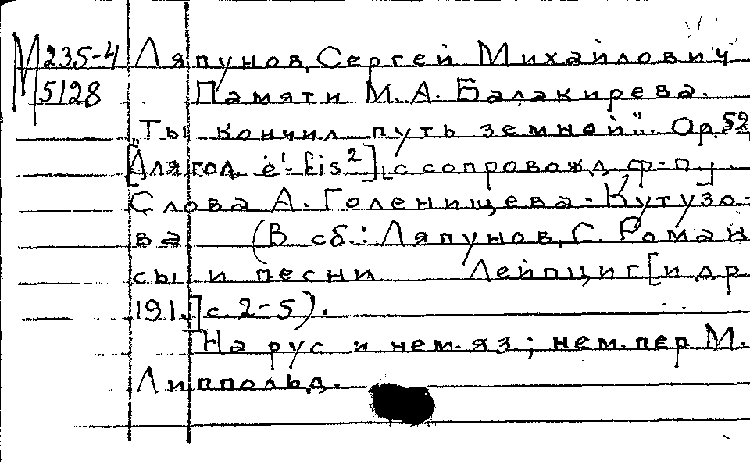 М 235-4 Ляпунов, Сергей Михайлович
5128 Памяти М. А. Балакирева.
„Ты кончил путь земной". Op. 52
[Для гол. e'-fis²] с сопровожд. ф-п.
Слова А. Голенищева-Кутузо-
ва (В сб.: Ляпунов, С. Роман
сы и песни Лейпциг [и др
191.] с. 2-5).
На рус и нем. яз.; нем. пер М.
Липпольд.